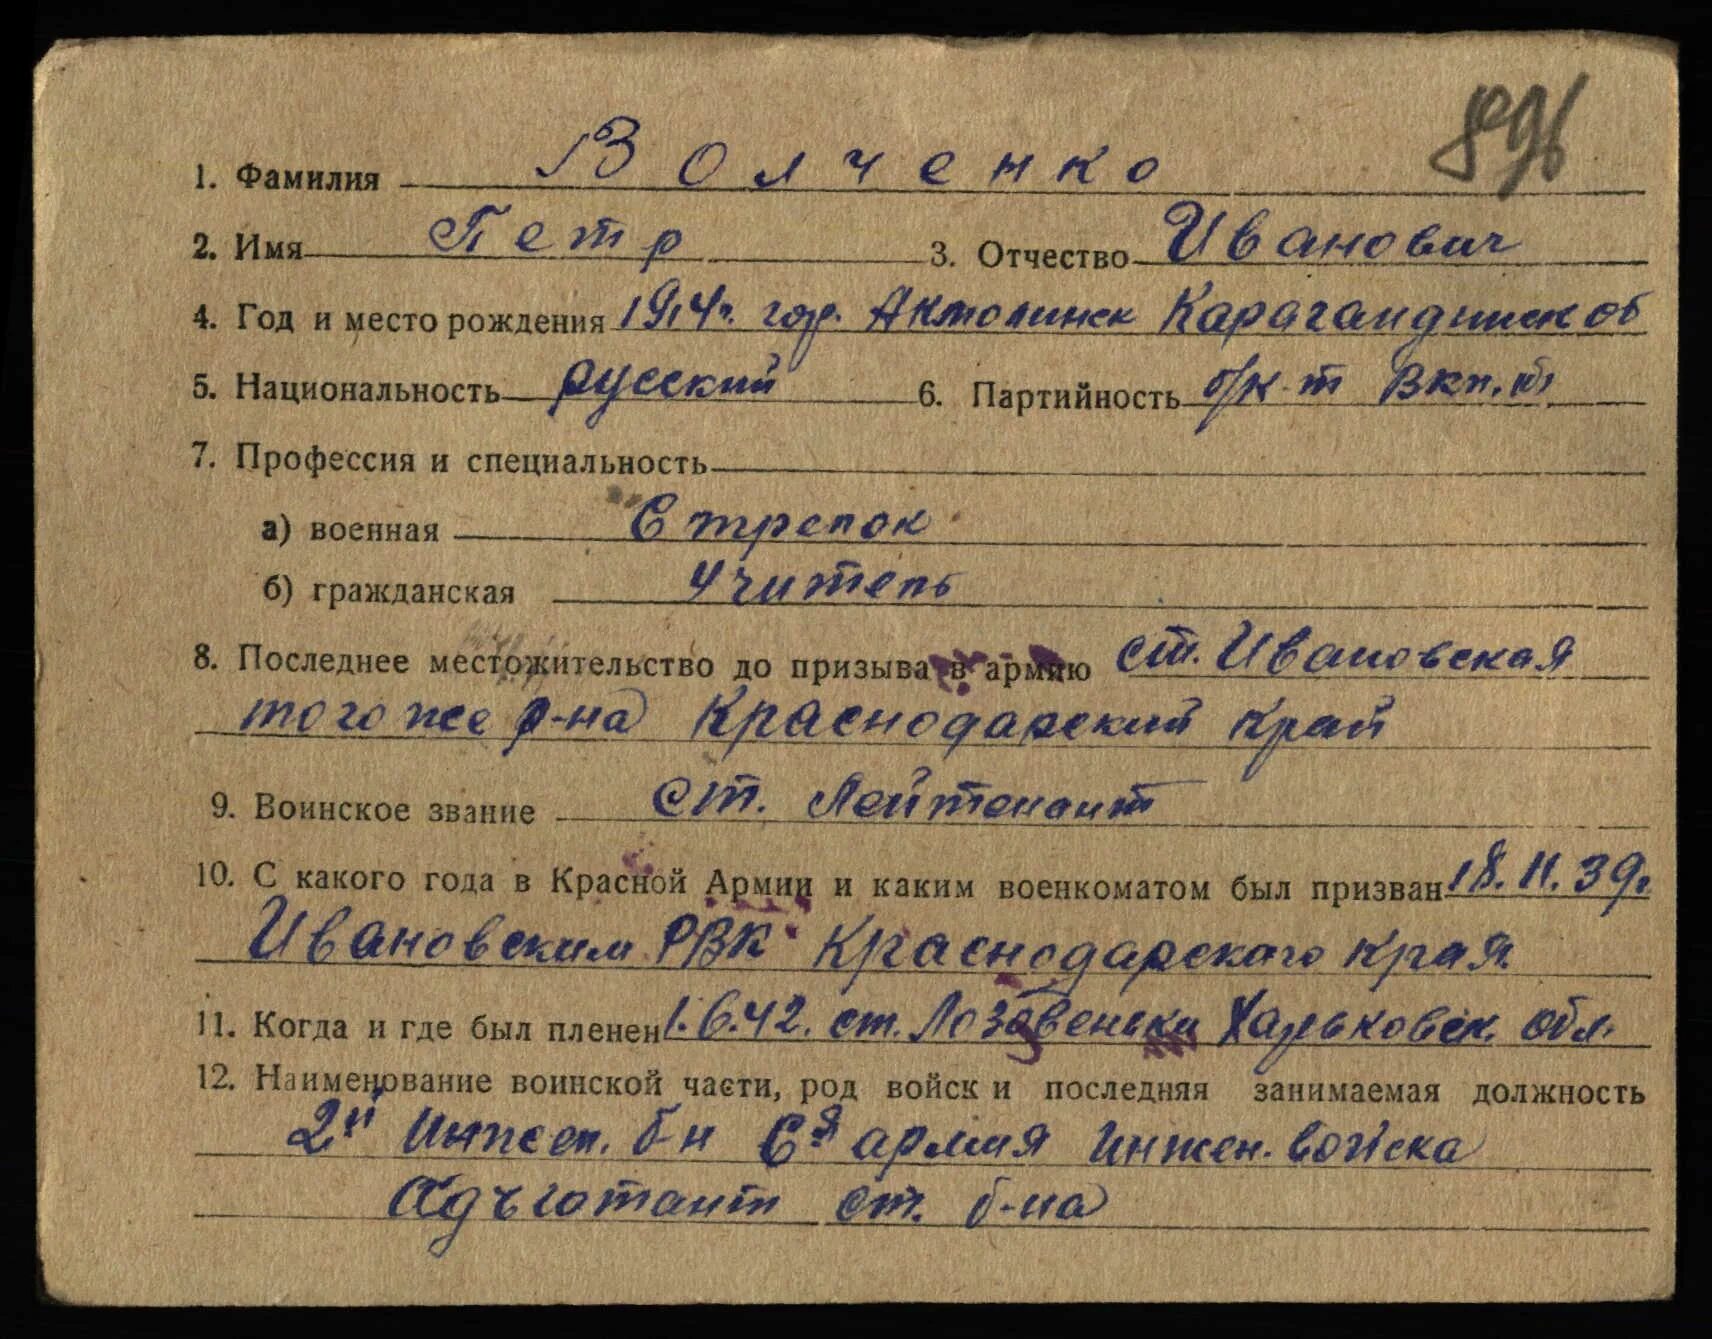 896
1. Фамилия Волченко
2. Имя Петр 3. Отчество Иванович
4. Год и место рождения 1914г. гор. Акмолинск Карагандинск об
5. Национальность русский 6. Партийность б/к-т ВКП.б
7. Профессия и специальность
а) военная Стрелок
б) гражданская Учитель
8. Последнее местожительство до призыва в армию ст. Ивановская
того же р-на Краснодарский край
9. Воинское звание ст. Лейтенант
10. С какого года в Красной Армии и каким военкоматом был призван 18.11.39г
Ивановским РВК Краснодарского края
11. Когда и где был пленен 1.6.42. ст. Лозовеньки Харьковск. обл.
12. Наименование воинской части, род войск и последняя занимаемая должность
2й инжен. б-н 6я армия инжен. войска
Адъютант ст. б-на